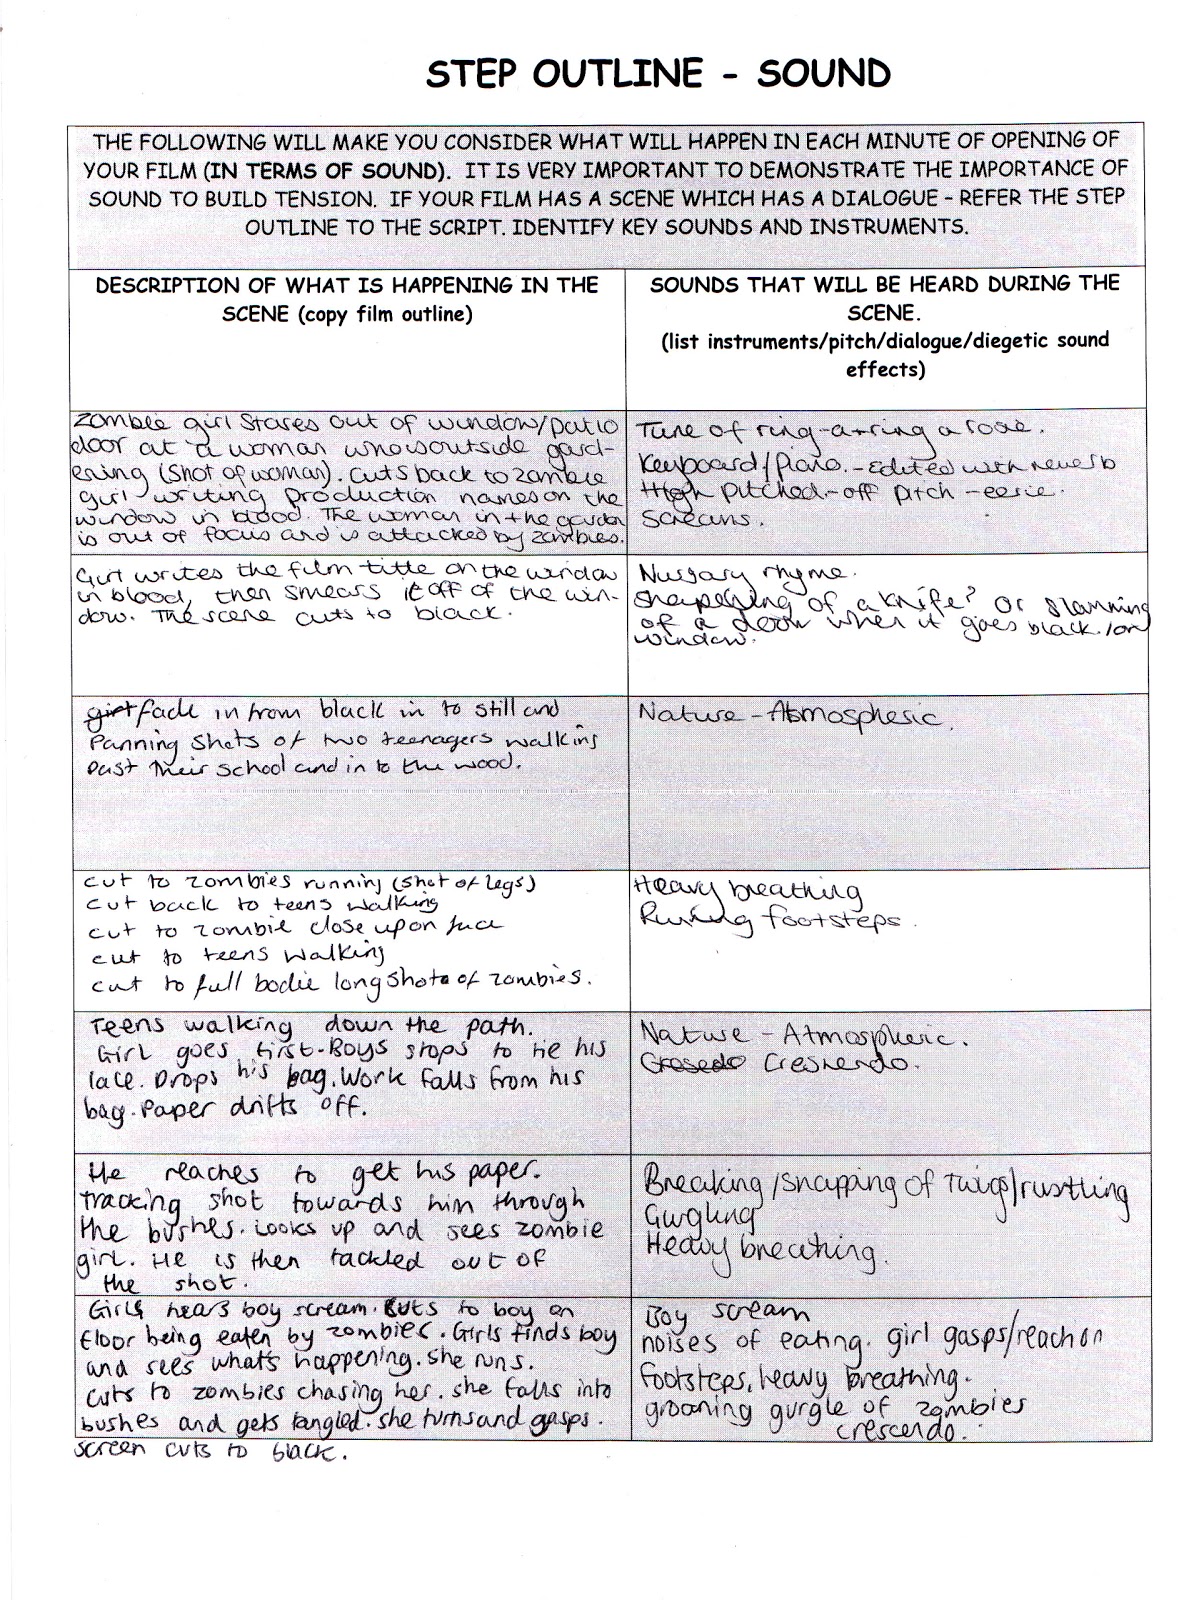 STEP OUTLINE - SOUND
THE FOLLOWING WILL MAKE YOU CONSIDER WHAT WILL HAPPEN IN EACH MINUTE OF OPENING OF
YOUR FILM (IN TERMS OF SOUND). IT IS VERY IMPORTANT TO DEMONSTRATE THE IMPORTANCE OF
SOUND TO BUILD TENSION. IF YOUR FILM HAS A SCENE WHICH HAS A DIALOGUE - REFER THE STEP
OUTLINE TO THE SCRIPT. IDENTIFY KEY SOUNDS AND INSTRUMENTS.
DESCRIPTION OF WHAT IS HAPPENING IN THE
SCENE (copy film outline)
SOUNDS THAT WILL BE HEARD DURING THE
SCENE.
(list instruments/pitch/dialogue/diegetic sound
effects)
Zombie girl stares out of window/patio
door at a woman who is outside gard-
ening (shot of woman). Cuts back to zombie
girl writing production names on the
window in blood. The woman in the garden
is out of focus and is attacked by zombies.
Tune of ring-a-ring a rose.
Keyboard/Piano. - Edited with reverb
High pitched - off pitch - eerie.
Screams.
Girl writes the film title on the window
in blood, then smears it off of the win-
dow. The scene cuts to black.
Nursary rhyme.
of a knife? Or slamming
of a door when it goes black. / on
window.
girl fade in from black in to still and
Panning shots of two teenagers walking
past their school and in to the wood.
Nature - Atmospheric.
cut to zombies running (shot of legs)
cut back to teens walking
cut to zombie close up on face
cut to teens walking
cut to full bodie long shots of zombies.
Heavy breathing
Running footsteps.
Teens walking down the path.
Girl goes first - Boys stops to tie his
lace. Drops his bag. Work falls from his
bag. Paper drifts off.
Nature - Atmospheric.
Cresendo Cresnendo.
He reaches to get his paper.
Tracking shot towards him through
the bushes. Looks up and sees zombie
girl. He is then tackled out of
the shot.
Breaking/snapping of twigs/rustling
Gurgling
Heavy breathing.
Girls hears boy scream. Cuts to boy on
floor being eaten by zombies. Girls finds boy
and sees what's happening. she runs.
Cuts to zombies chasing her. she falls into
bushes and gets tangled. she turns and gasps.
screen cuts to black.
Boy scream
noises of eating. girl gasps/reachon
footsteps, heavy breathing.
groaning gurgle of zombies
crescendo.